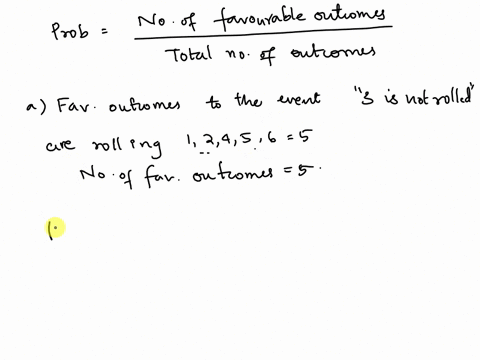 Prob = No. of favourable outcomes
Total no. of outcomes
a) Fav. outcomes to the event "3 is not rolled"
are rolling 1, 2, 4, 5, 6 = 5
No. of fav. outcomes = 5.